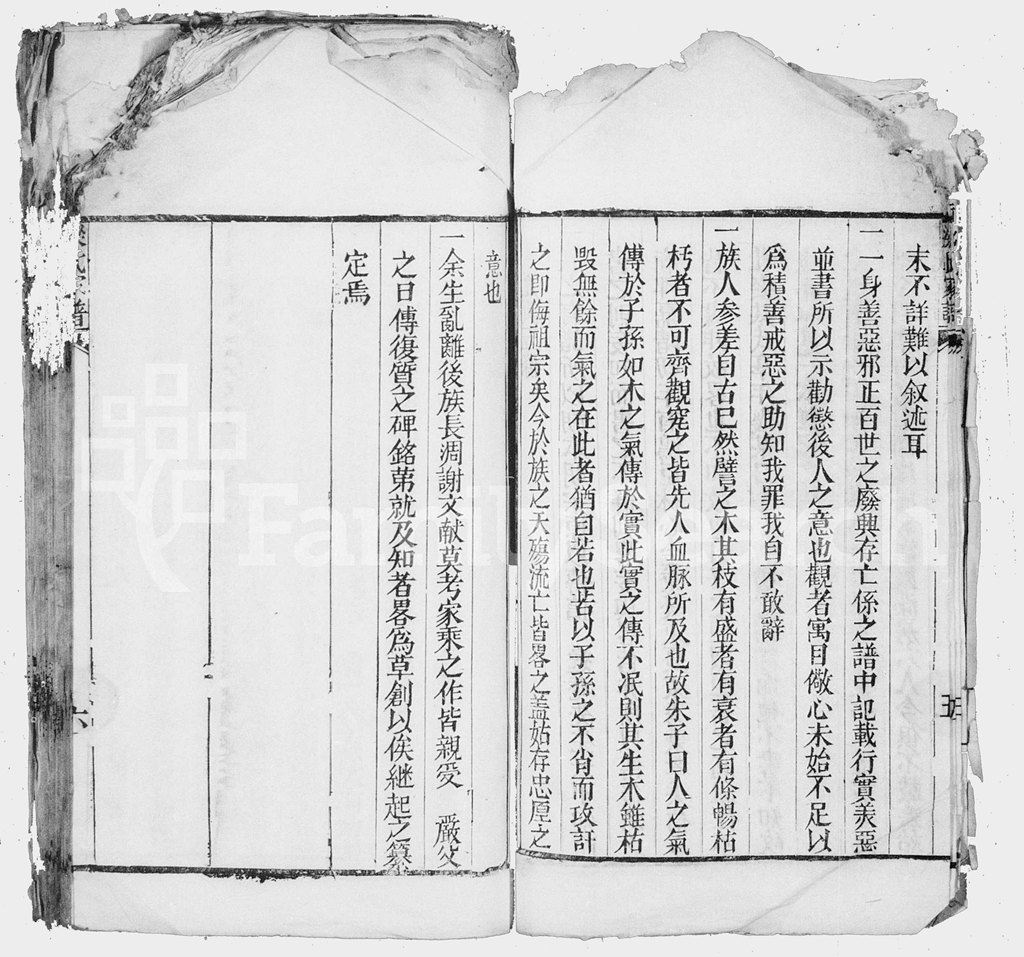 末不詳難以叙述耳
一一身善惡邪正百世之廢興存亡係之譜中記載行實美惡
並書所以示勸懲後人之意也觀者寓目儆心未始不足以
爲積善戒惡之助知我罪我自不敢辭
一族人參差自古已然譬之木其枝有盛者有衰者有條暢枯
朽者不可齊觀究之皆先人血脉所及也故朱子曰人之氣
傳於子孫如木之氣傳於實此實之傳不泯則其生木雖枯
毁無餘而氣之在此者猶自若也苦以子孫之不肖而攻訐
之即侮祖宗矣今於族之夭殤流亡皆畧之盖姑存忠厚之
意也
一余生亂離後族長凋謝文献莫考家乘之作皆親受 嚴父
之日傳復質之碑銘苐就及知者畧爲草創以俟継起之纂
定焉
五
六
FamilySearch